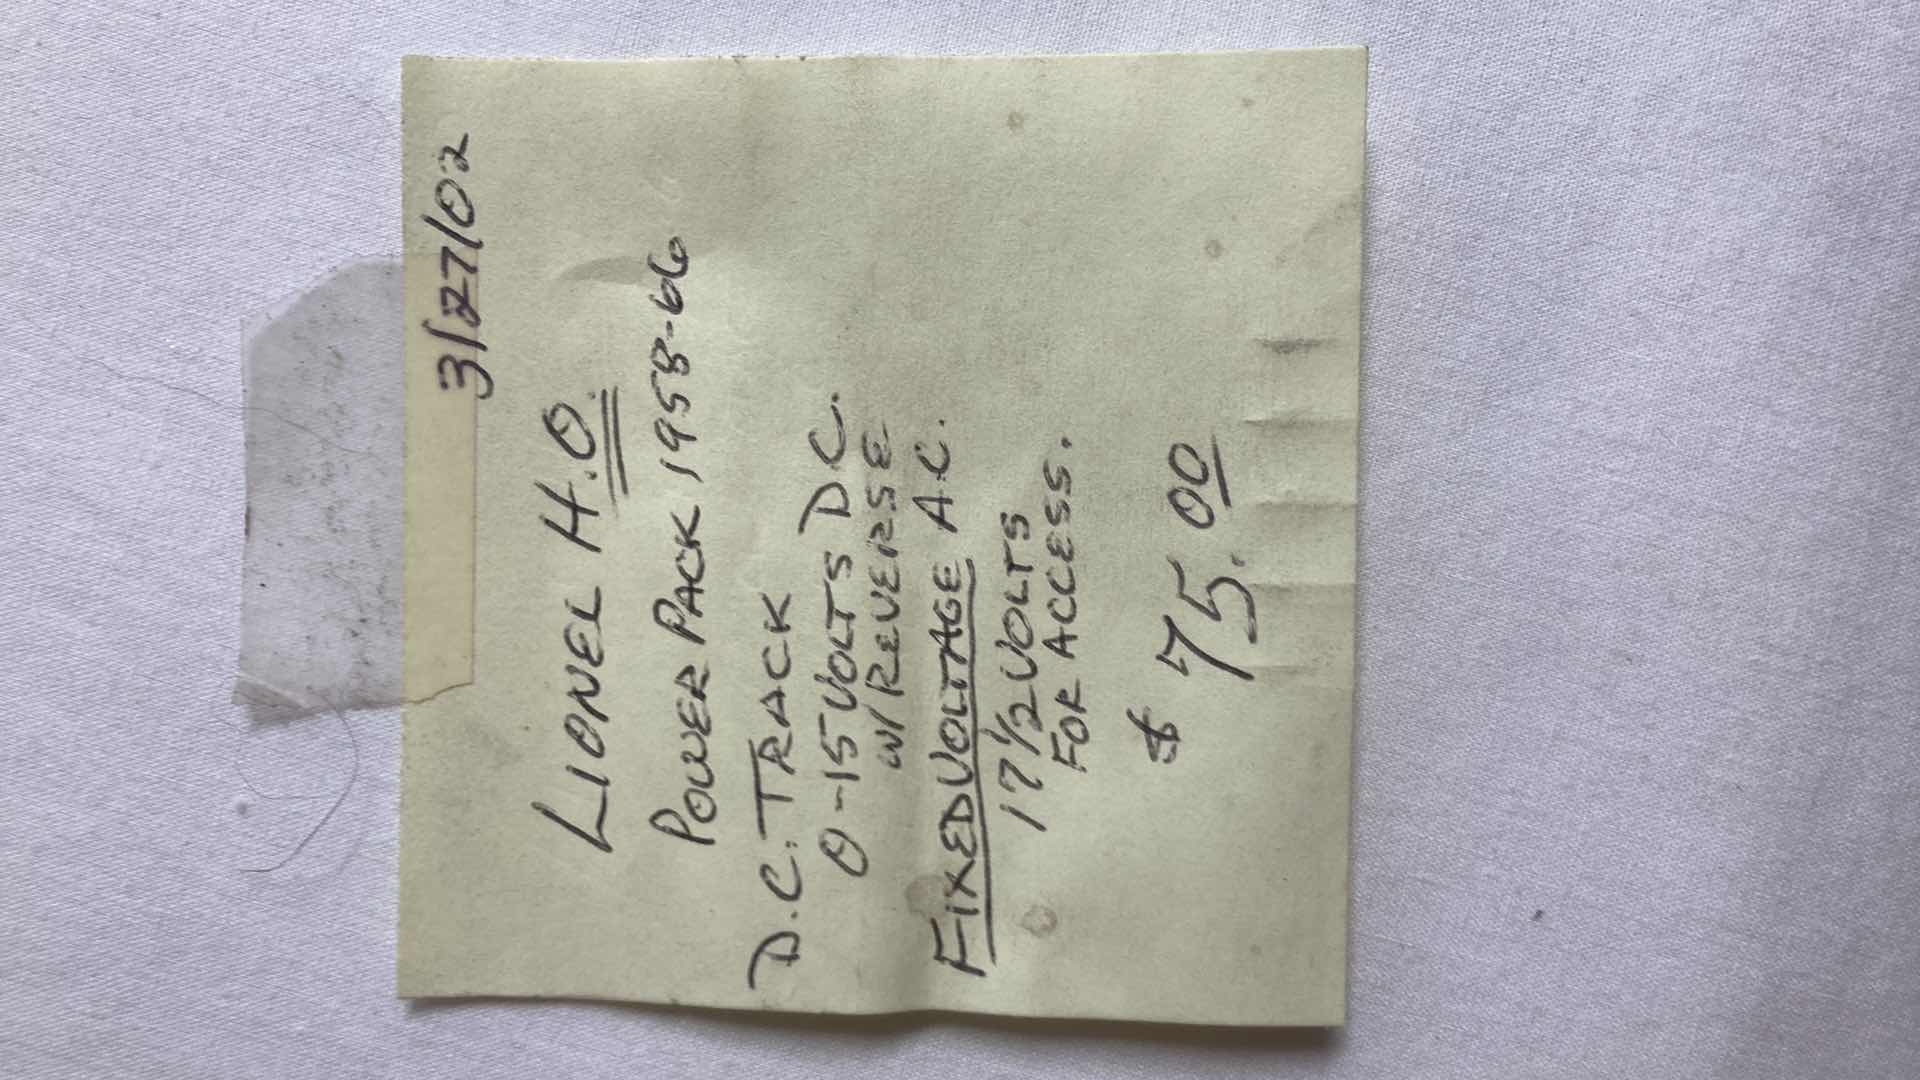 3/27/02
LIONEL H.O.
POWER PACK 1958-66
D.C. TRACK
0-15 VOLTS D.C.
W/ REVERSE
FIXED VOLTAGE A.C.
17 1/2 VOLTS
FOR ACCESS.
$ 75.00